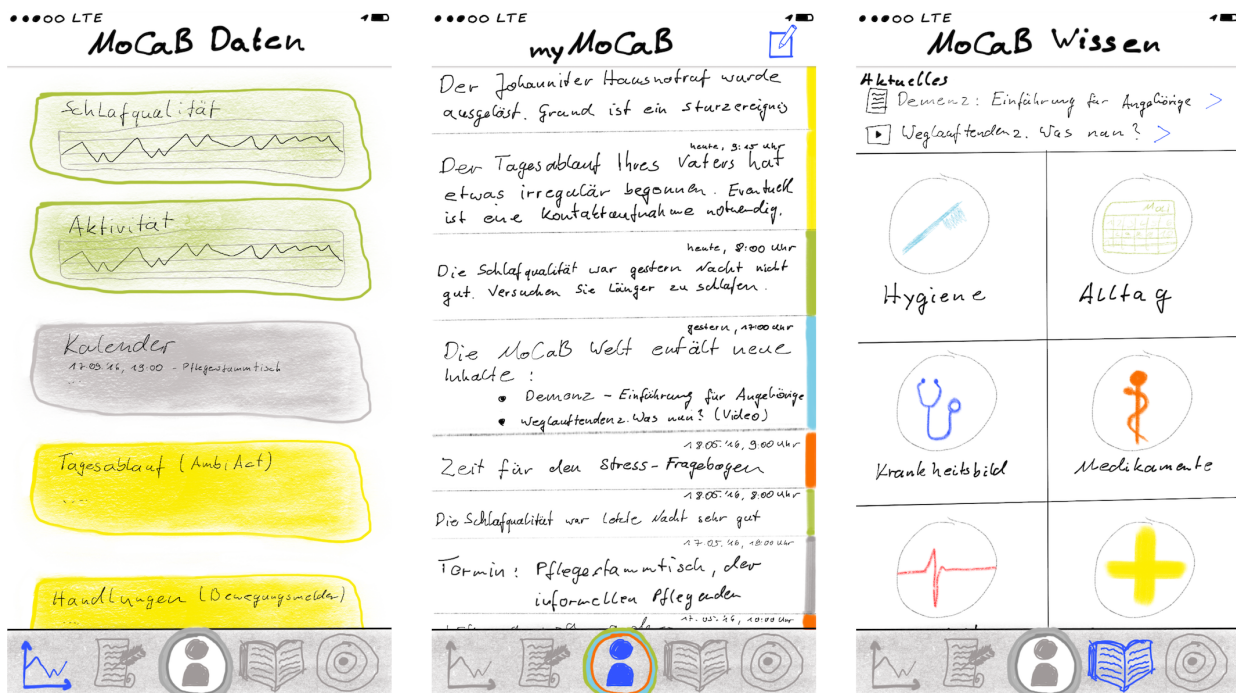 LTE
MoCaB Daten
Schlafqualität
Aktivität
Kalender
17.09.'16, 19:00 - Pflegestammtisch
...
Tagesablauf (AmbiAct)
....
Handlungen (Bewegungsmelder)
LTE
myMoCaB
Der Johanniter Hausnotruf wurde
ausgelöst. Grund ist ein sturzereignis
heute, 9:15 uhr
Der Tagesablauf Ihres Vaters hat
etwas irregulär begonnen. Eventuell
ist eine Kontaktaufnahme notwendig.
heute, 8:00 uhr
Die Schlafqualität war gestern Nacht nicht
gut. Versuchen Sie Länger zu schlafen.
gestern, 17:00 uhr
Die MoCaB Welt entält neue
Inhalte:
• Demenz - Einführung für Angehörige
• Weglauftendenz. Was nun? (Video)
18.05.'16, 9:00 uhr
Zeit für den Stress-Fragebogen
18.05.'16, 8:00 uhr
Die Schlafqualität war letzte Nacht sehr gut
17.05.'16, 18:00 uhr
Termin: Pflegestammtisch, der
informellen Pflegenden
17.05.'16, 10:00 uhr
LTE
MoCaB Wissen
Aktuelles
Demenz: Einführung für Angehörige >
Weglauftendenz. Was nun? >
Hygiene
Alltag
Krankheitsbild
Medikamente